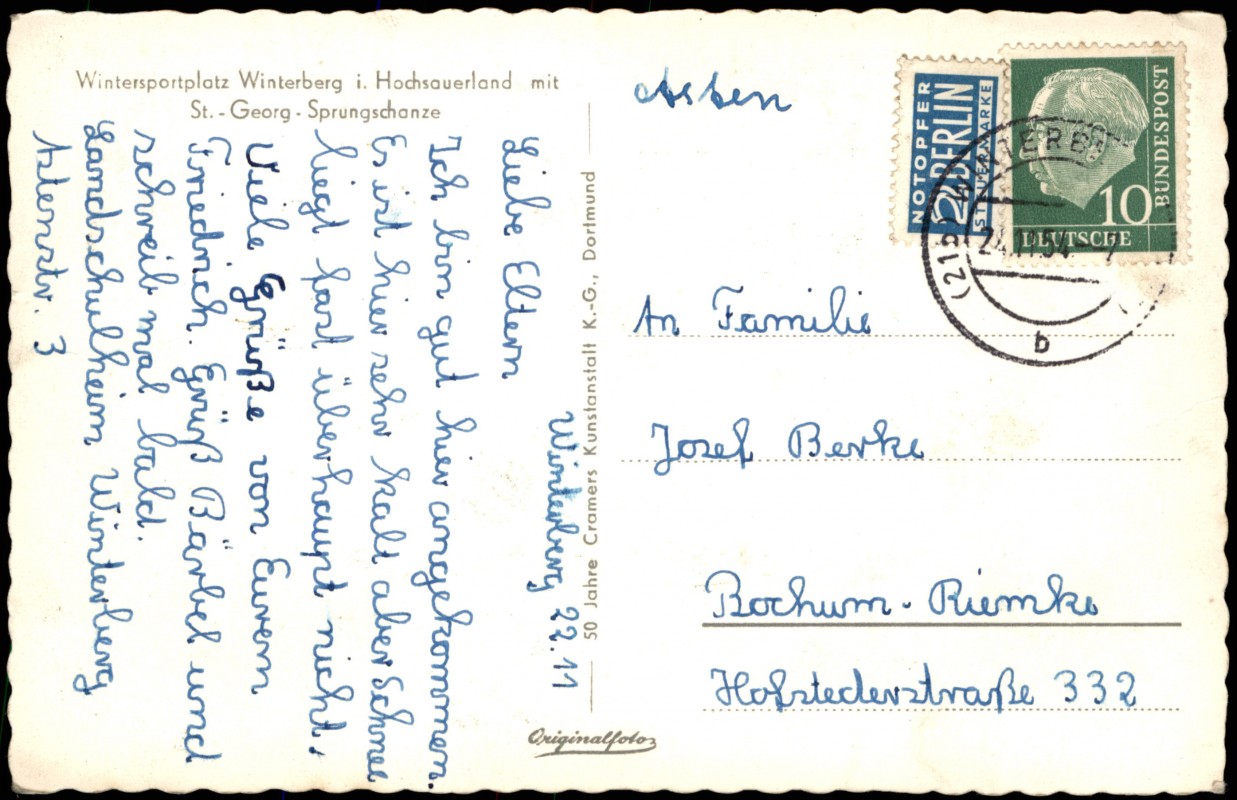 Wintersportplatz Winterberg i. Hochsauerland mit
St.-Georg-Sprungschanze
Winterberg 22.11
Liebe Eltern
Ich bin gut hier angekommen.
Es ist hier sehr kalt aber Schnee
liegt fast überhaupt nicht.
Viele Grüße von Eurem
Friedrich. Grüß Bärbel und
schreib mal bald.
Landschulheim Winterberg
Astenstr. 3
50 Jahre Cramers Kunstanstalt K.-G., Dortmund
Originalfoto
NOTOPFER
2 BERLIN
STEUERMARKE
10
DEUTSCHE
BUNDESPOST
(21b) WINTERBERG
24.11.54 -7
b
An Familie
Josef Berke
Bochum-Riemke
Hofstederstraße 332